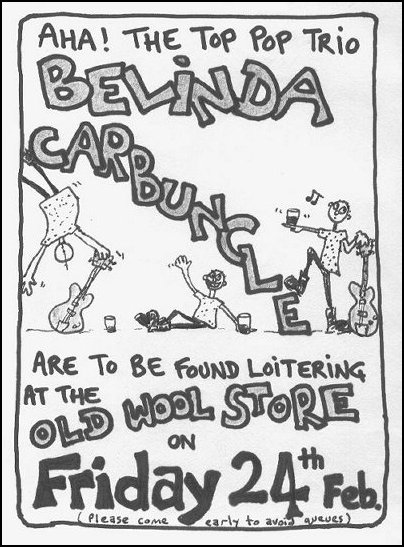 AHA! THE TOP POP TRIO
BELINDA
CARBUNCLE
ARE TO BE FOUND LOITERING
AT THE
OLD WOOL STORE
ON
Friday 24th Feb.
(Please come early to avoid queues)